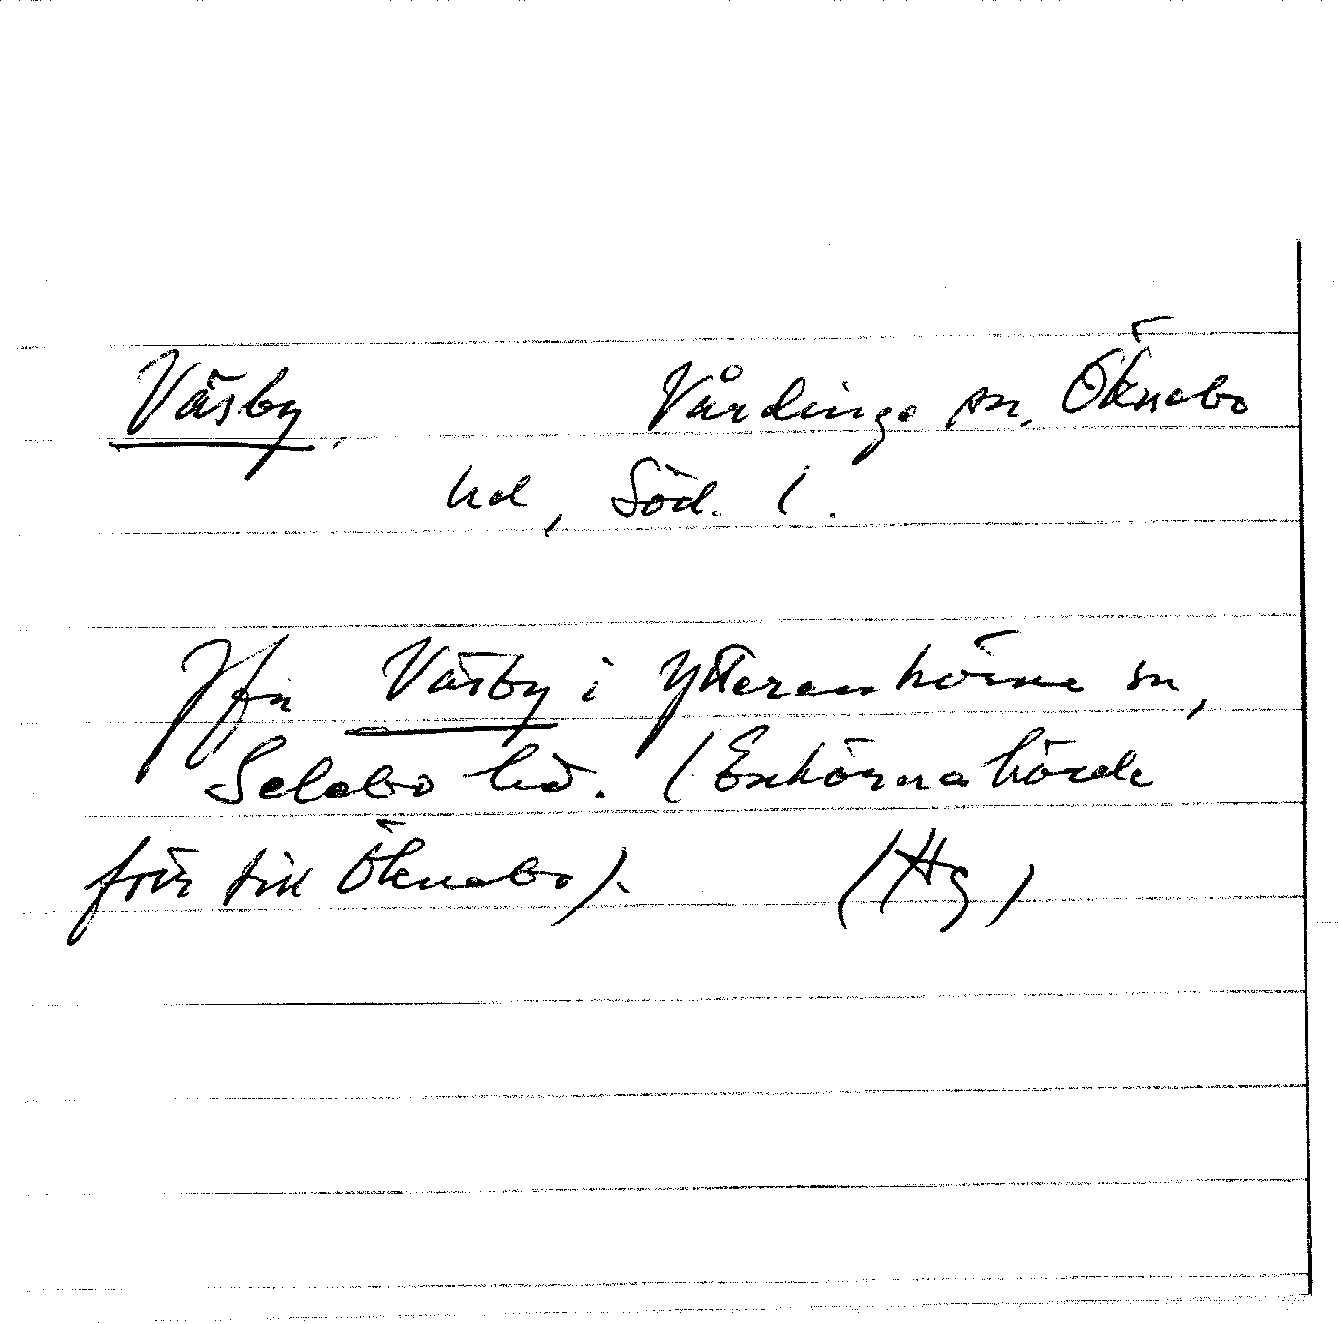 Väsby, Vårdinge sn, Öknebo
hd, Söd. l.
Jfr Väsby i Ytterenhörna sn,
Selebo hd. (Enhörna hörde
förr till Öknebo). (Hg)